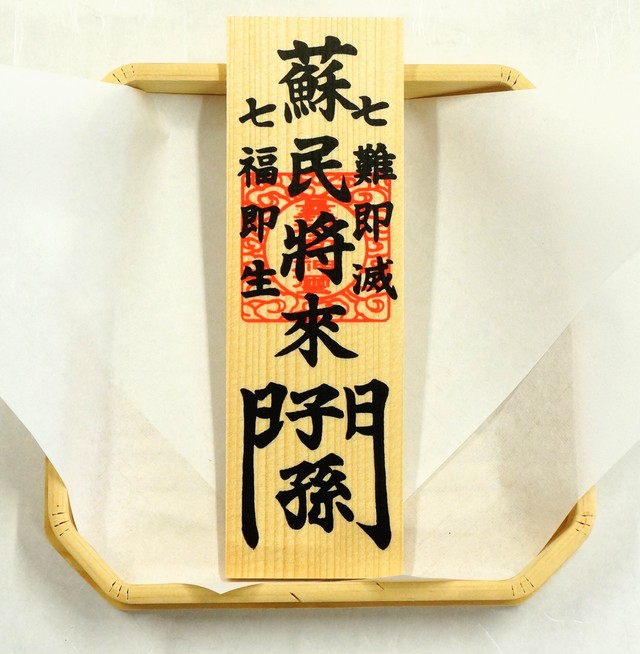 七難即滅
蘇民將來子孫門
七福即生